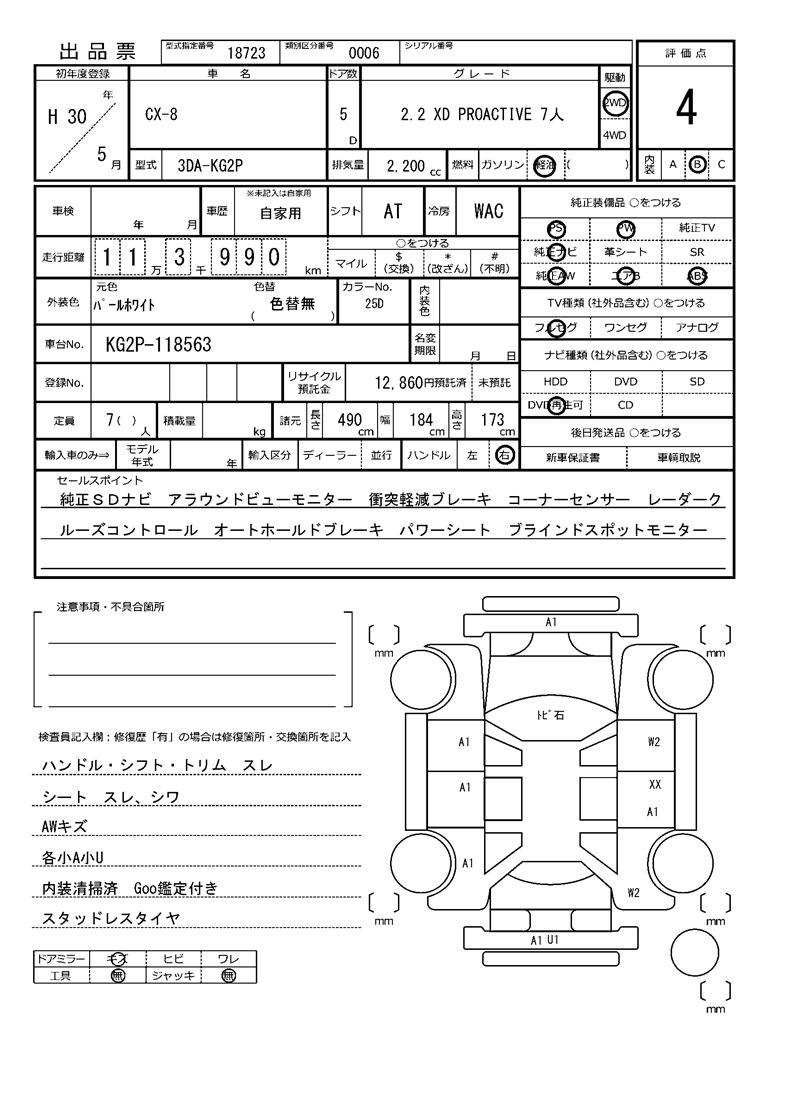 出品票 型式指定番号 18723 類別区分番号 0006 シリアル番号
評価点
4
内装 A B C
初年度登録 車名 ドア数 グレード 駆動
H 30 年 5 月 CX-8 5 D 2.2 XD PROACTIVE 7人 2WD
4WD
型式 3DA-KG2P 排気量 2,200 cc 燃料 ガソリン 軽油 ( )
車検 年 月 車歴 ※未記入は自家用 自家用 シフト AT 冷房 WAC
走行距離 1 1 万 3 千 9 9 0 km
○をつける
マイル $ (交換) * (改ざん) # (不明)
外装色 元色 パールホワイト 色替 色替無 ( ) カラーNo. 25D 内装色
車台No. KG2P-118563 名変期限 月 日
登録No. リサイクル預託金 12,860円預託済 未預託
定員 7( ) 人 積載量 kg 諸元 長さ 490 cm 幅 184 cm 高さ 173 cm
輸入車のみ⇒ モデル年式 年 輸入区分 ディーラー 並行 ハンドル 左 右
純正装備品 ○をつける
PS PW 純正TV
純正ナビ 革シート SR
純正AW エアB ABS
TV種類(社外品含む)○をつける
フルセグ ワンセグ アナログ
ナビ種類(社外品含む)○をつける
HDD DVD SD
DVD再生可 CD
後日発送品 ○をつける
新車保証書 車輌取説
セールスポイント
純正SDナビ アラウンドビューモニター 衝突軽減ブレーキ コーナーセンサー レーダーク
ルーズコントロール オートホールドブレーキ パワーシート ブラインドスポットモニター
注意事項・不具合箇所
検査員記入欄:修復歴「有」の場合は修復箇所・交換箇所を記入
ハンドル・シフト・トリム スレ
シート スレ、シワ
AWキズ
各小A小U
内装清掃済 Goo鑑定付き
スタッドレスタイヤ
ドアミラー キズ ヒビ ワレ
工具 無 ジャッキ 無
A1
mm mm
トビ石
A1 W2
A1 XX
A1
A1 W2
mm mm
A1 U1
mm